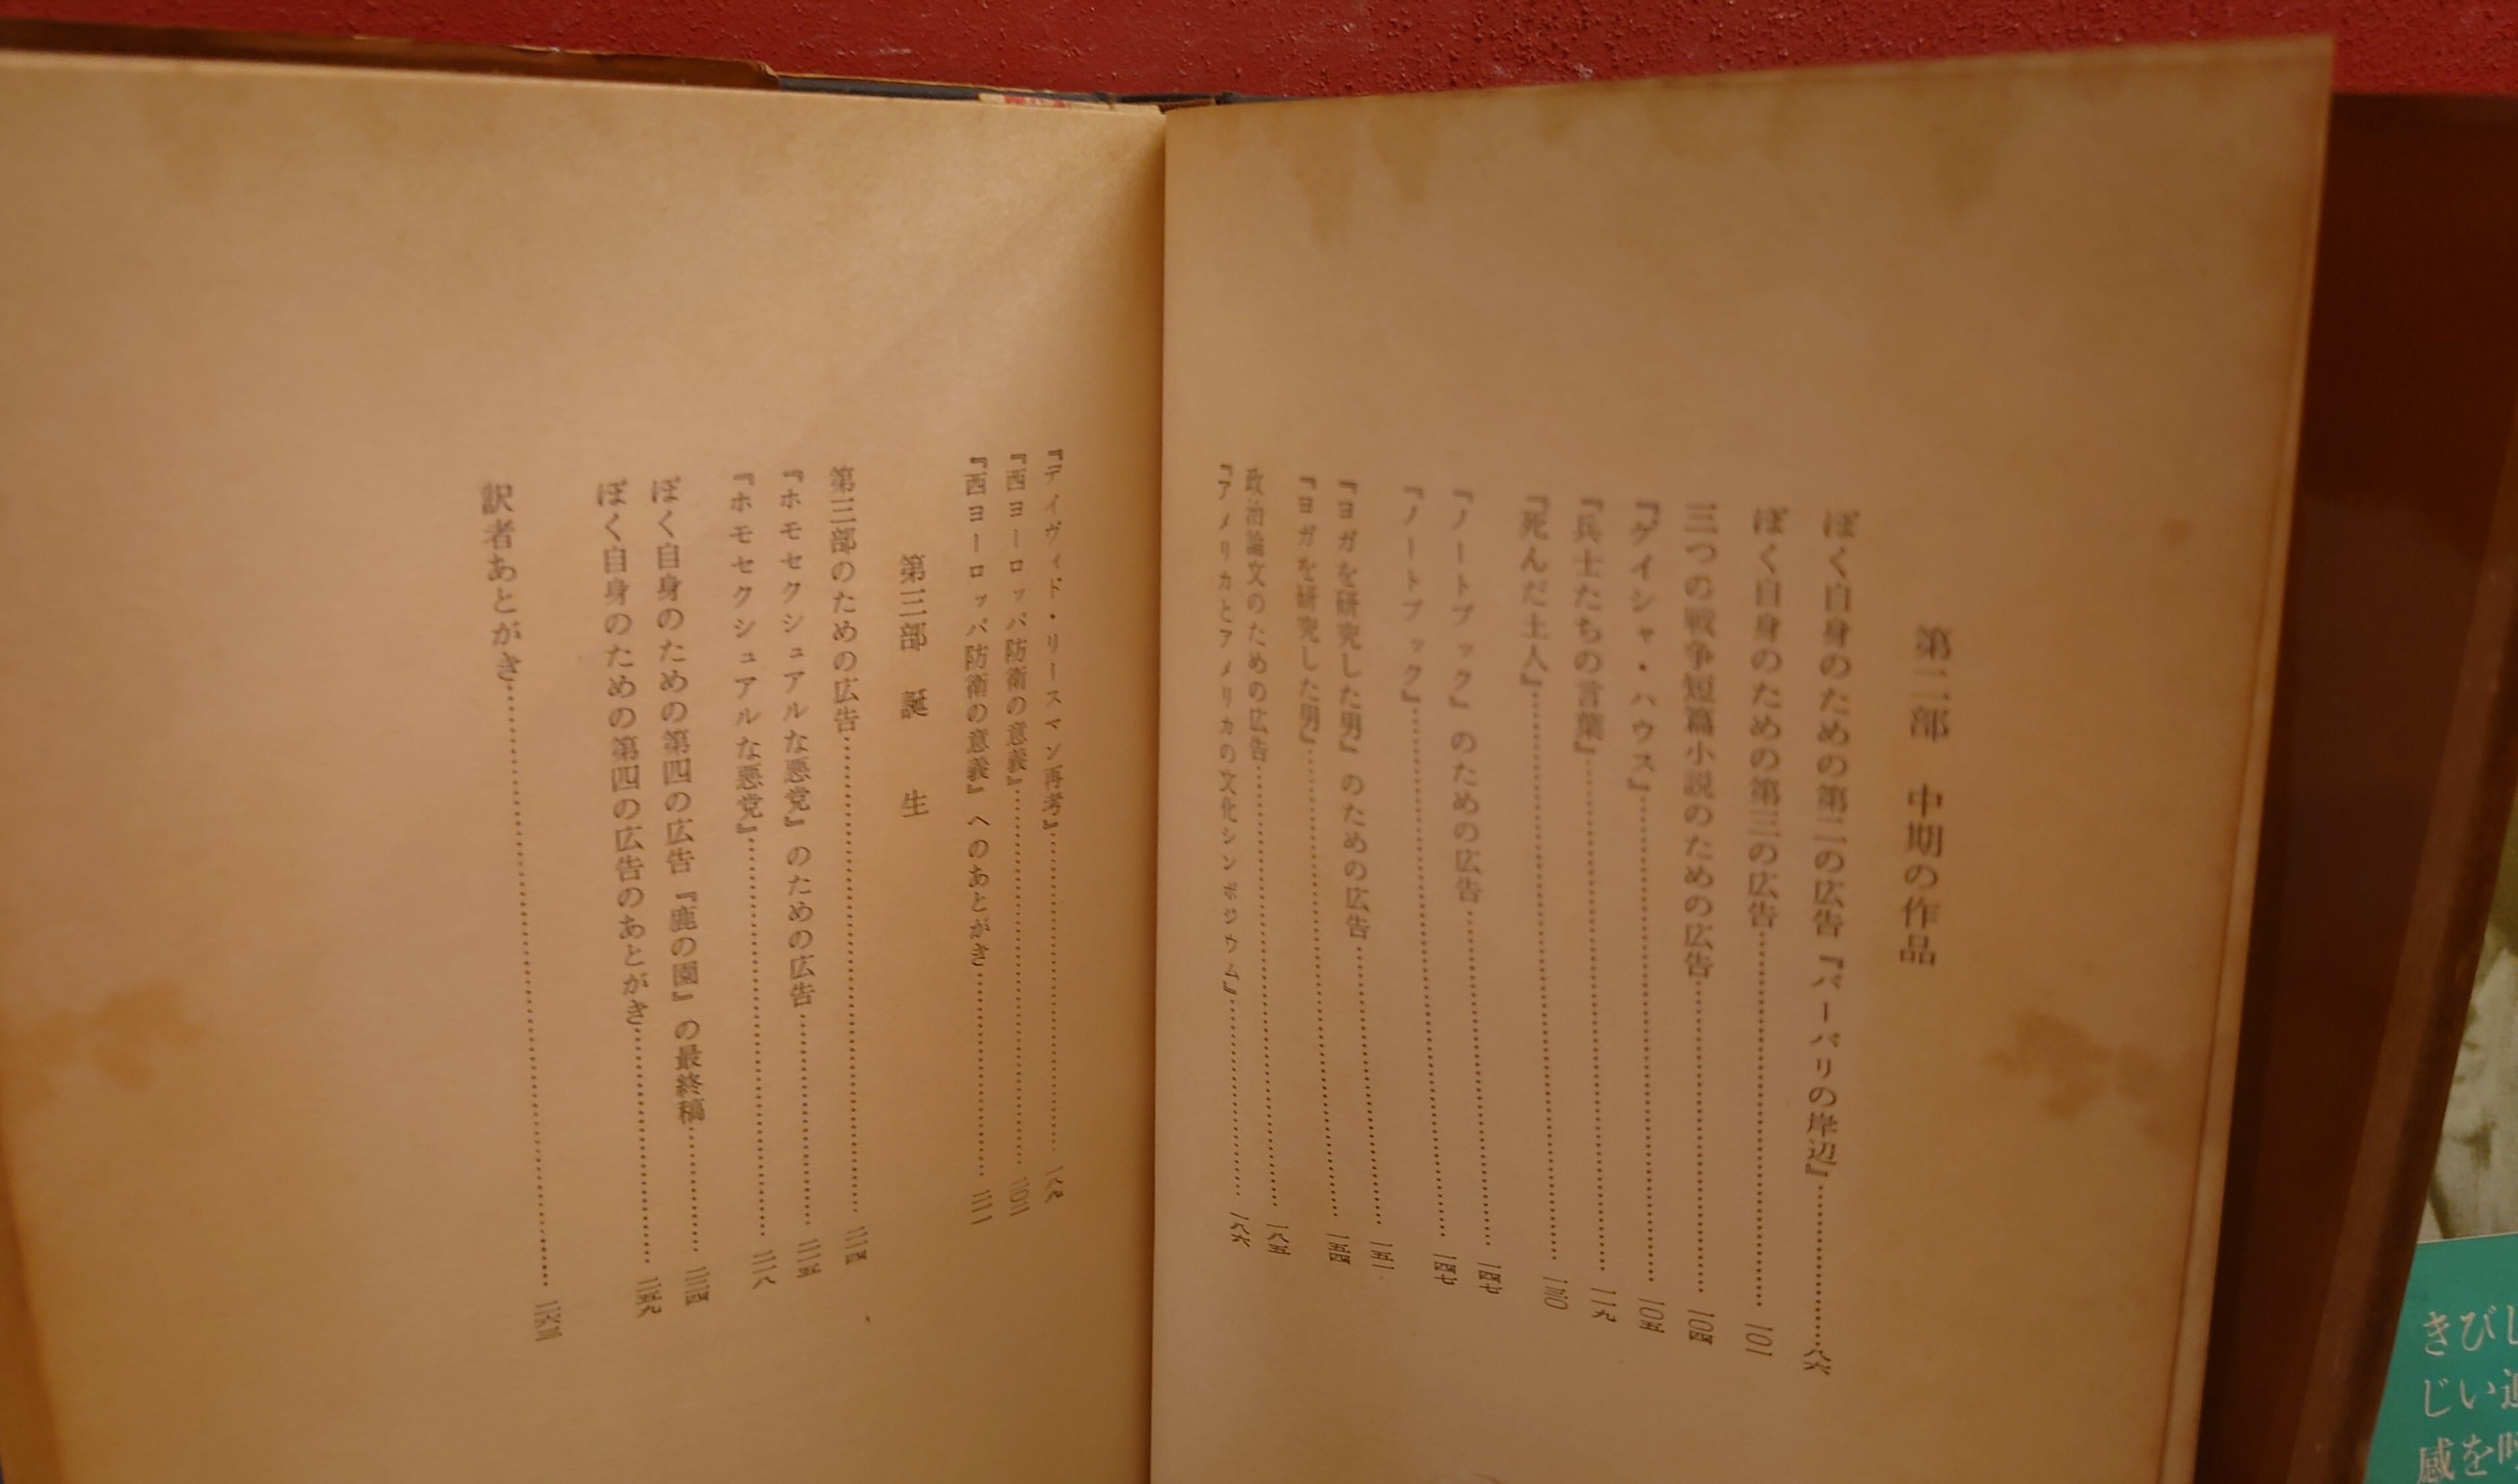 第二部　中期の作品
ぼく自身のための第二の広告『バーバリの岸辺』……………八六
ぼく自身のための第三の広告……………一〇一
三つの戦争短篇小説のための広告……………一〇四
『ゲイシャ・ハウス』……………一〇五
『兵士たちの言葉』……………一一九
『死んだ土人』……………一三〇
『ノートブック』のための広告……………一四七
『ノートブック』……………一四七
『ヨガを研究した男』のための広告……………一五一
『ヨガを研究した男』……………一五四
政治論文のための広告……………一八五
『アメリカとアメリカの文化シンポジウム』……………一八六
『デイヴィド・リースマン再考』……………一八九
『西ヨーロッパ防衛の意義』……………二〇二
『西ヨーロッパ防衛の意義』へのあとがき……………二一一
第三部　誕　生
第三部のための広告……………二一四
『ホモセクシュアルな悪党』のための広告……………二一五
『ホモセクシュアルな悪党』……………二一八
ぼく自身のための第四の広告『鹿の園』の最終稿……………二三四
ぼく自身のための第四の広告のあとがき……………二五九
訳者あとがき……………二六三
きびし
じい
感を